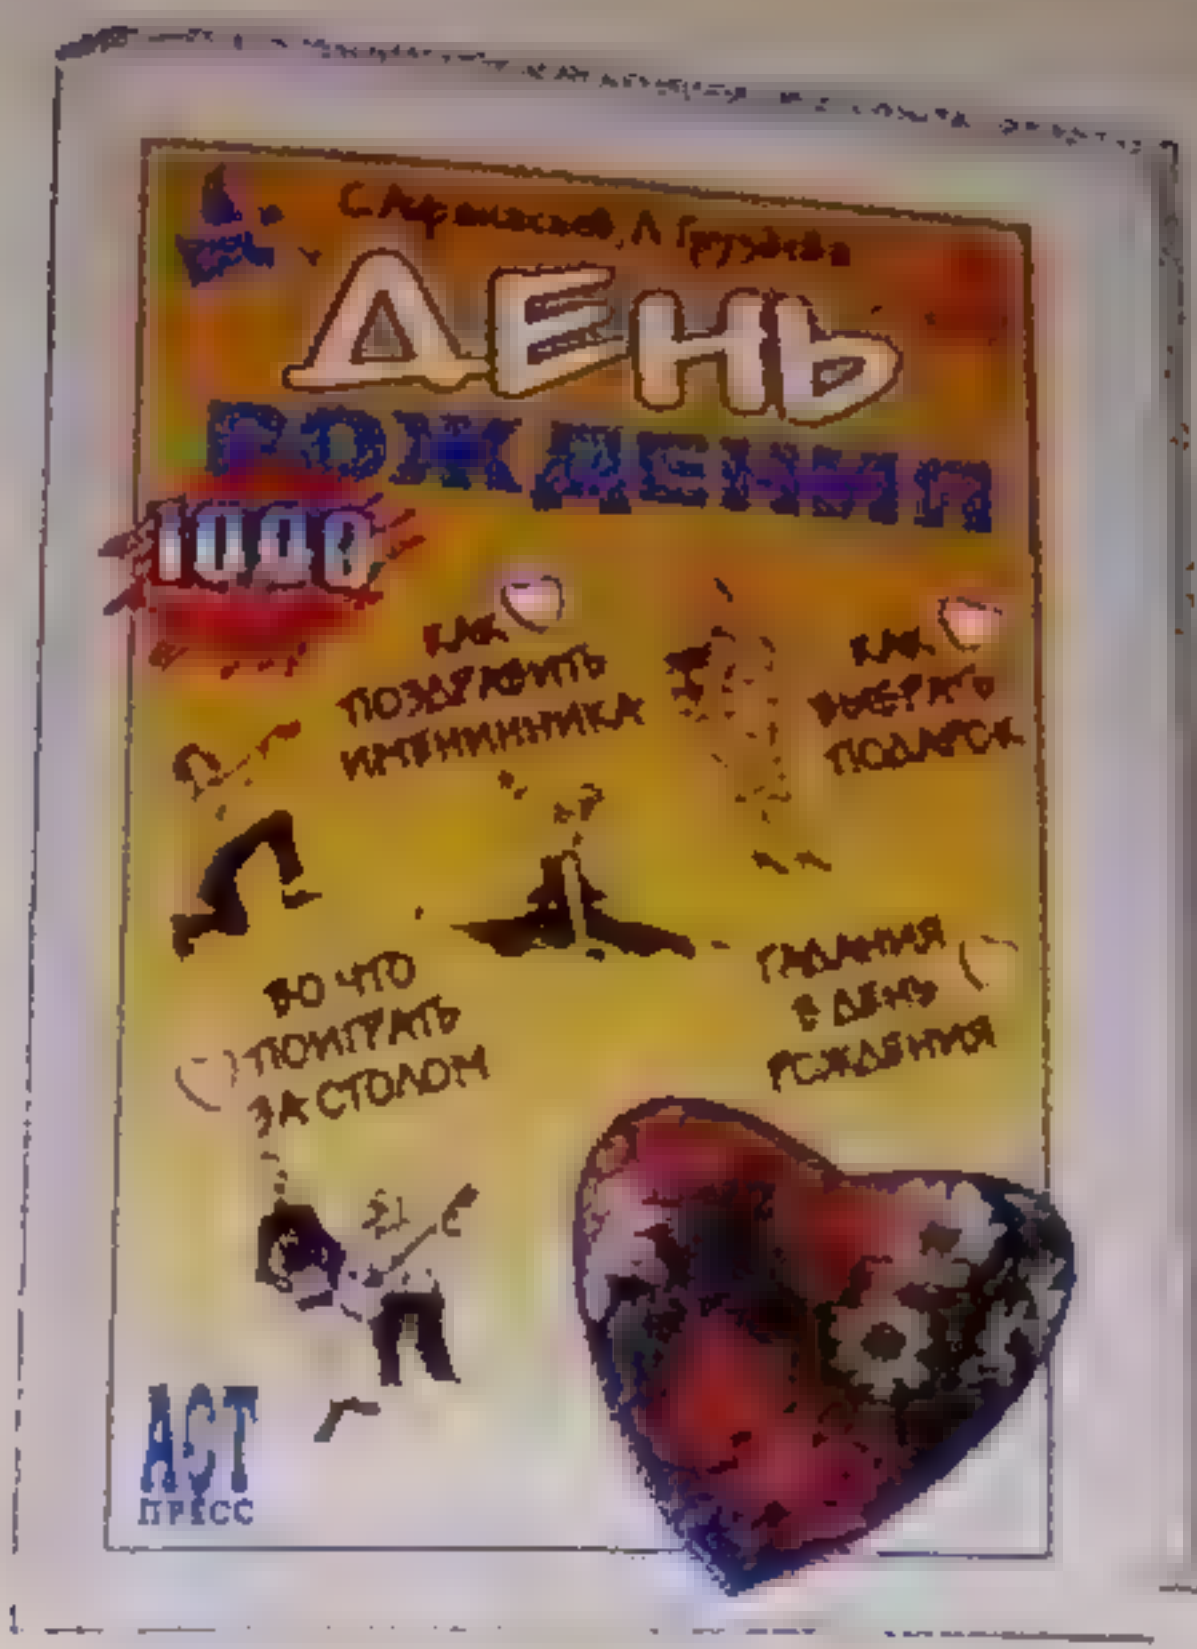 С. Афанасьев, Л. Груздева
ДЕНЬ
РОЖДЕНИЯ
1000
КАК
ПОЗДРАВИТЬ
ИМЕНИННИКА
КАК
ВЫБРАТЬ
ПОДАРОК
ВО ЧТО
ПОИГРАТЬ
ЗА СТОЛОМ
ГАДАНИЯ
В ДЕНЬ
РОЖДЕНИЯ
АСТ
ПРЕСС